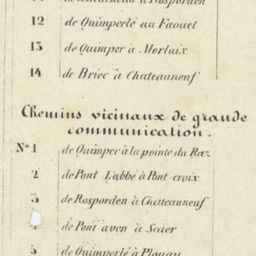 à Rosporden
12 de Quimperlé au Faouet
13 de Quimper à Morlaix
14 de Briec à Chateauneuf
Chemins vicinaux de grande
communication.
N° 1 de Quimper à la pointe du Raz
2 de Pont L'abbé à Pont-croix
3 de Rosporden à Chateauneuf
4 de Pont aven à Scaer
5 de Quimperlé à Plouay